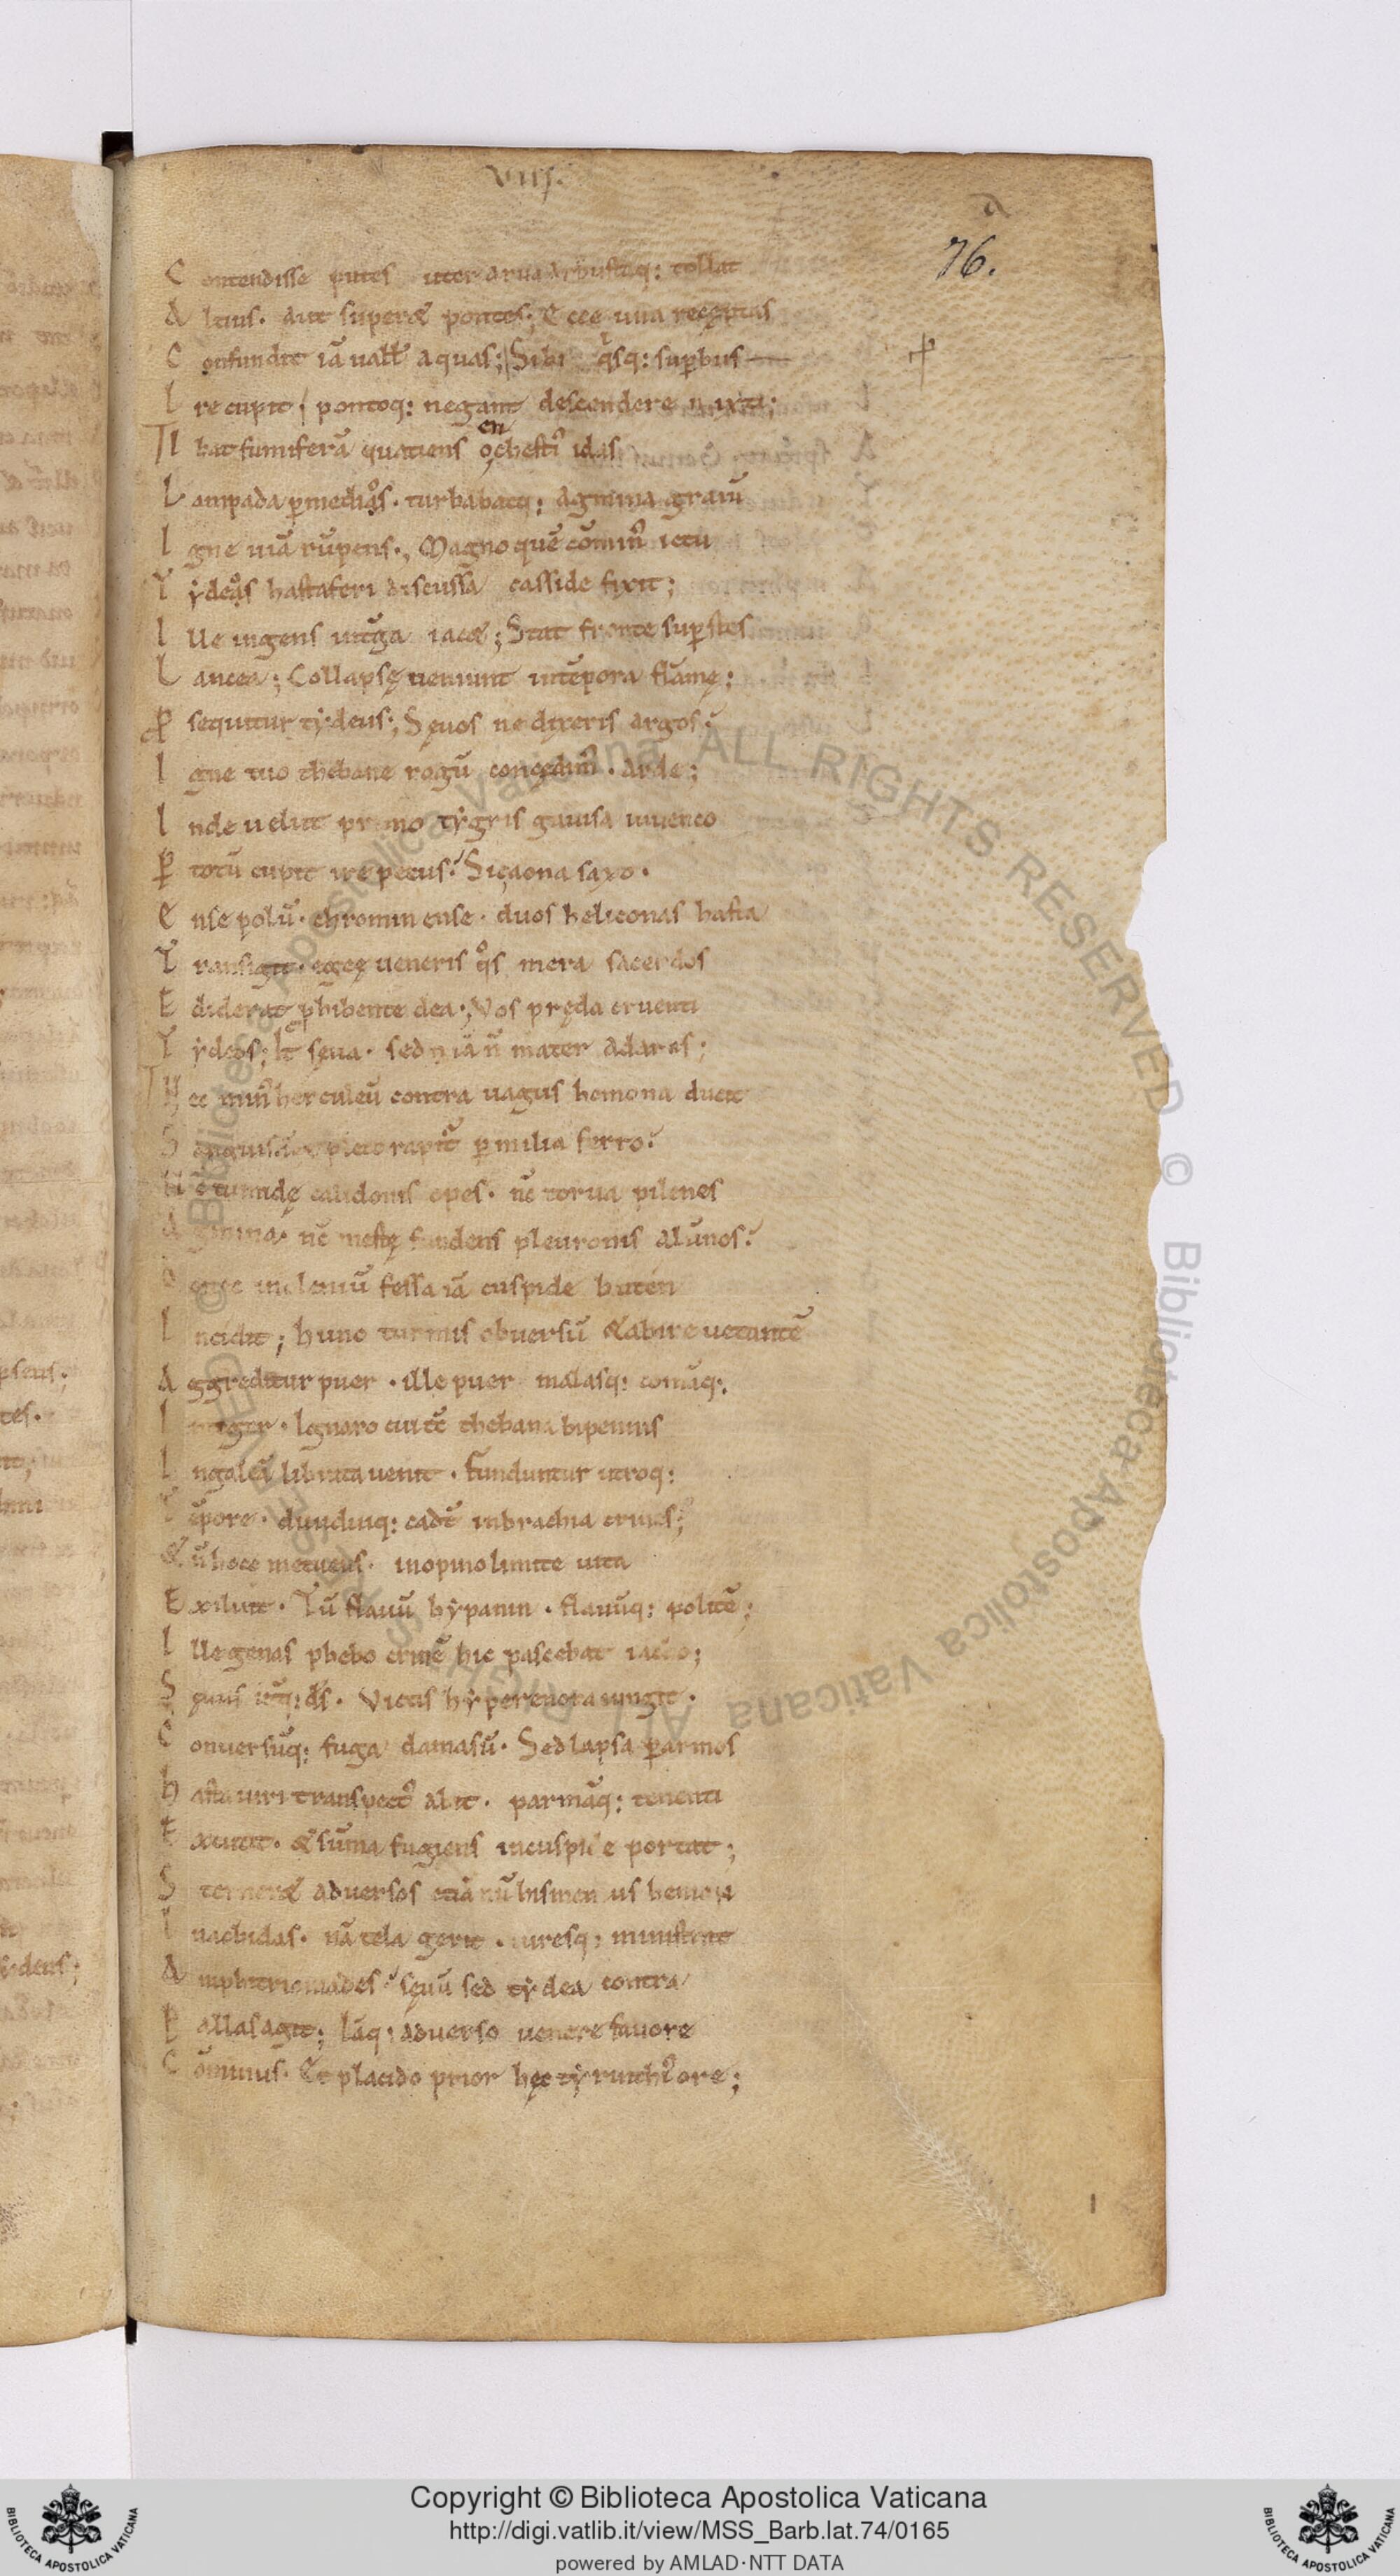 VIII.
a
76.
C ontendisse putes uter arua arbustaq: tollat
A ltius. aut superæ pontes; Ecce una receptas
C onfundit iā uall' aquas; Sibi q͛sq: suꝑbus
I re cupit, pontoq: negant descendere
I bat fumiferā quatiens oenchesti᷒ idas
L ampada ꝑ mediͦs. turbabatq; agmina graiū
I gne uiā rūpens. Magno quē cōmin᷒ ictu
T ẏdeͦs hasta feri discussa casside fixit;
I lle ingens in t͛ga iacæ; Stat fronte suꝑstes
L ancea; Collapsę ueniunt in tēpora flāmę;
P sequitur tẏdeus; Sęuos ne dixeris argos.
I gne tuo thebane rogū concędim᷒. arde;
I nde uelut primo tẏgris gauisa iuuenco
ꝑ totū cupit ire pecus. Sic aona saxo.
E nse polū. chromin ense. duos heliconas hasta
T ransigit. egeę ueneris qͦs mera sacerdos
E diderat ꝓhibente dea; Vos pręda cruenti
T ẏdeos; It sęua. sed iā ñ mater ad aras;
N ec min᷒ herculeū contra uagus hemona ducit
S anguis. rapit᷒ ꝑ milia ferro.
N c̄ tumidę calidonis opes. nc̄ torua pilenes
A gmina. nc̄ mestę fundens pleuronis alūnos.
D onec in oleniū fessa iā cuspide buten
I ncidit; hunc turmis obuersū & abire uetantē
A ggreditur puer. ille puer malasq: comāq;
I nteger. Ignaro cui tc̄ thebana bipennis
I n galeā librata uenit. funduntur utroq:
T ēpore. diuidiuiq: cadt̄ in brachia crines;
& ñ hoc metuens. inopino limite uita
E xiluit. Tū flauū hẏpanin. flauūq: politē;
I lle genas phebo crinē hic pascebat iaccho;
S ęuis. Victis hẏperenora iungit.
C onuersūq; fuga damasū. Sed lapsa ꝑ armos
H asta uiri trans pect᷒ abit. parmāq: tenenti
E xcutit. & sūma fugiens in cuspide portat;
S terneræ aduersos etiā nū hismenus hemon
I nachidas. nā tela gerit. uiresq: ministrat
A mphitrioniades. sęuū sed tẏdea contra
P allas agit; Iāq: aduerso uenere fauore
C ōminus. Et placido prior hęc tẏrinthi᷒ ore;
Copyright © Biblioteca Apostolica Vaticana
http://digi.vatlib.it/view/MSS_Barb.lat.74/0165
powered by AMLAD·NTT DATA